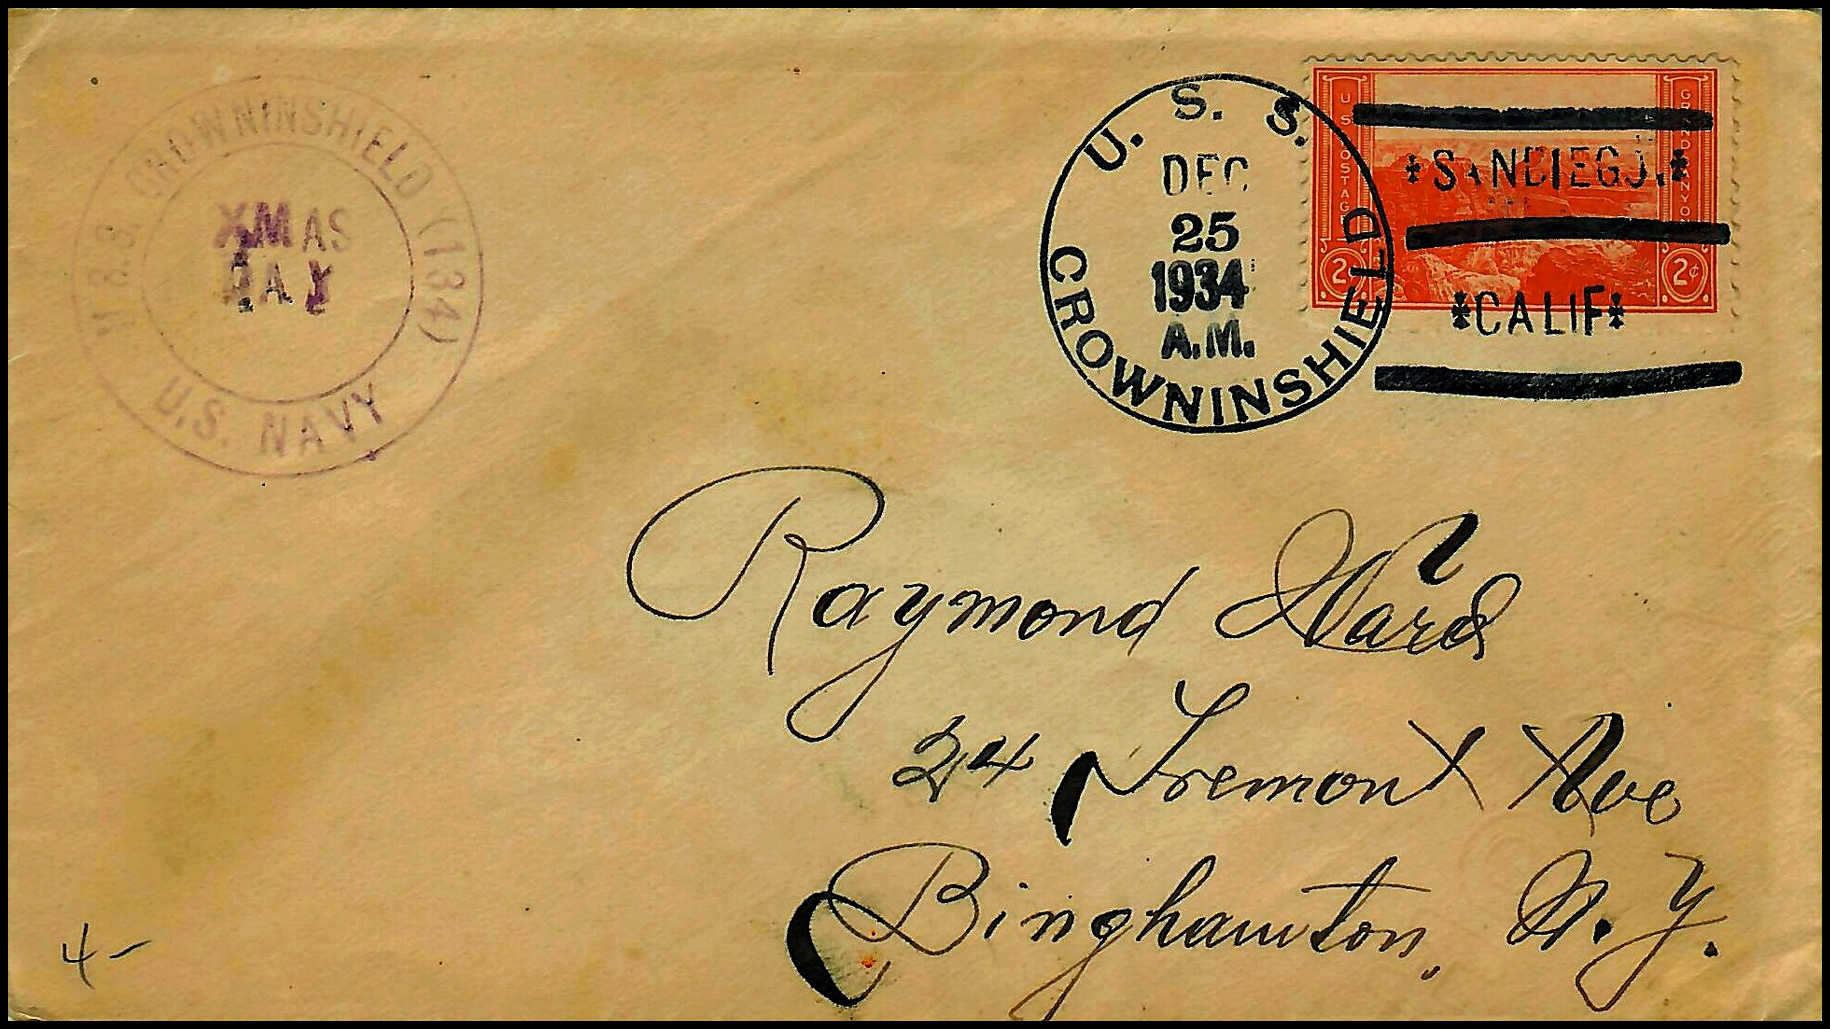 U.S.S. CROWNINSHIELD (134)
XMAS
DAY
U.S. NAVY
U. S. S.
DEC
25
1934
A.M.
CROWNINSHIELD
U.S. POSTAGE
GRAND CANYON
2¢ 2¢
SANDIEGO.
CALIF
Raymond Ward
24 Tremont Ave
Binghamton, N.Y.
4-